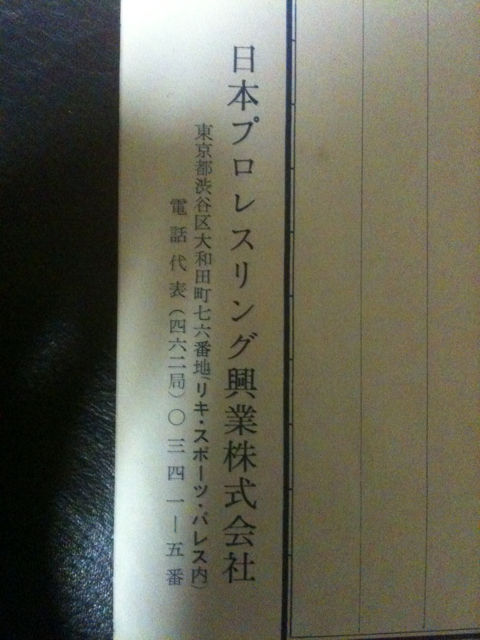 日本プロレスリング興業株式会社
東京都渋谷区大和田町七六番地(リキ・スポーツ・パレス内)
電話代表(四六二局)〇三四一―五番